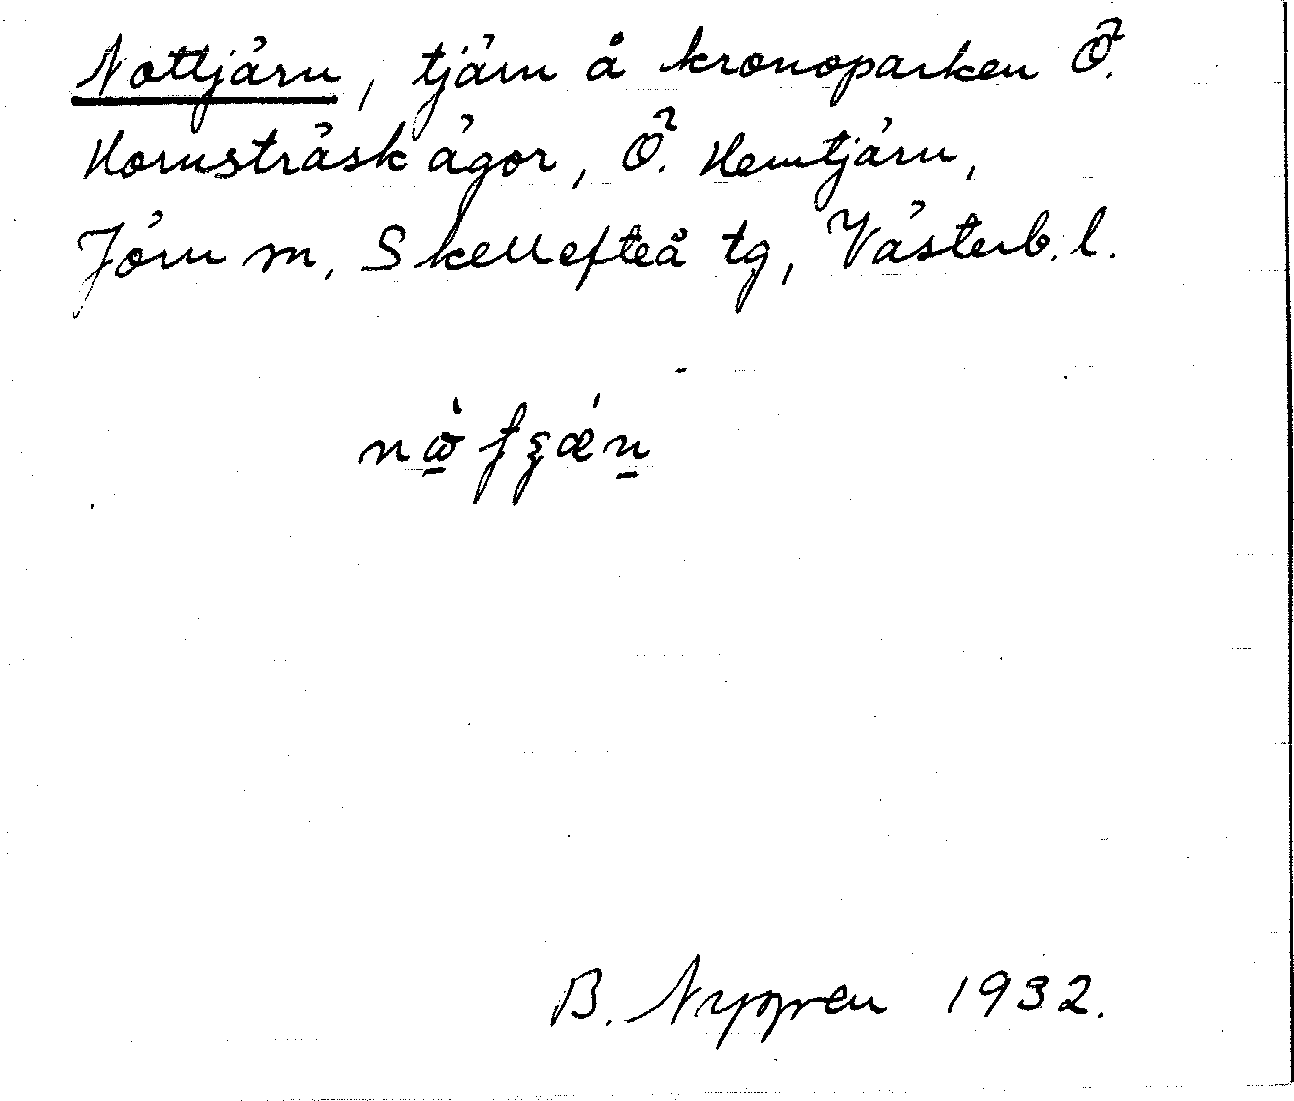 Nottjärn, tjärn å kronoparken Ö.
Hornsträskägor, Ö. Hemtjärn,
Jörn sn, Skellefteå tg, Västerb. l.
B. Nygren 1932.